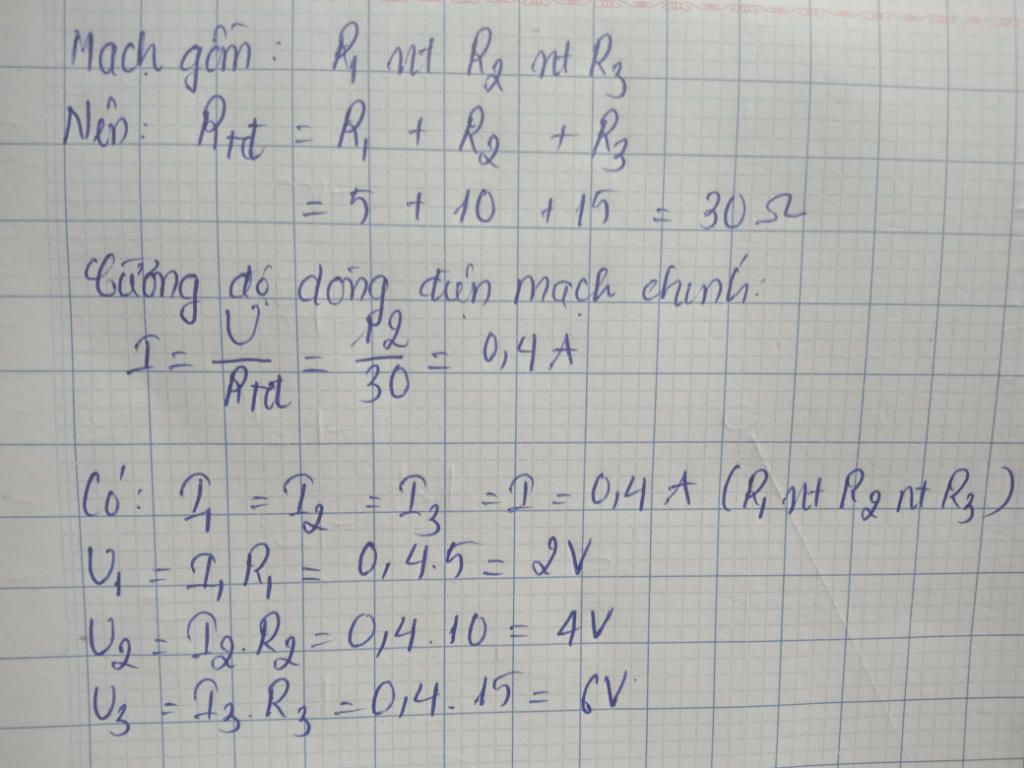 Mạch gồm: R₁ nt R₂ nt R₃
Nên: Rtđ = R₁ + R₂ + R₃
= 5 + 10 + 15 = 30 Ω
Cường độ dòng điện mạch chính:
I = U/Rtđ = 12/30 = 0,4 A
Có: I₁ = I₂ = I₃ = I = 0,4 A (R₁ nt R₂ nt R₃)
U₁ = I₁ R₁ = 0,4.5 = 2V
U₂ = I₂. R₂ = 0,4. 10 = 4V
U₃ = I₃. R₃ = 0,4. 15 = 6V